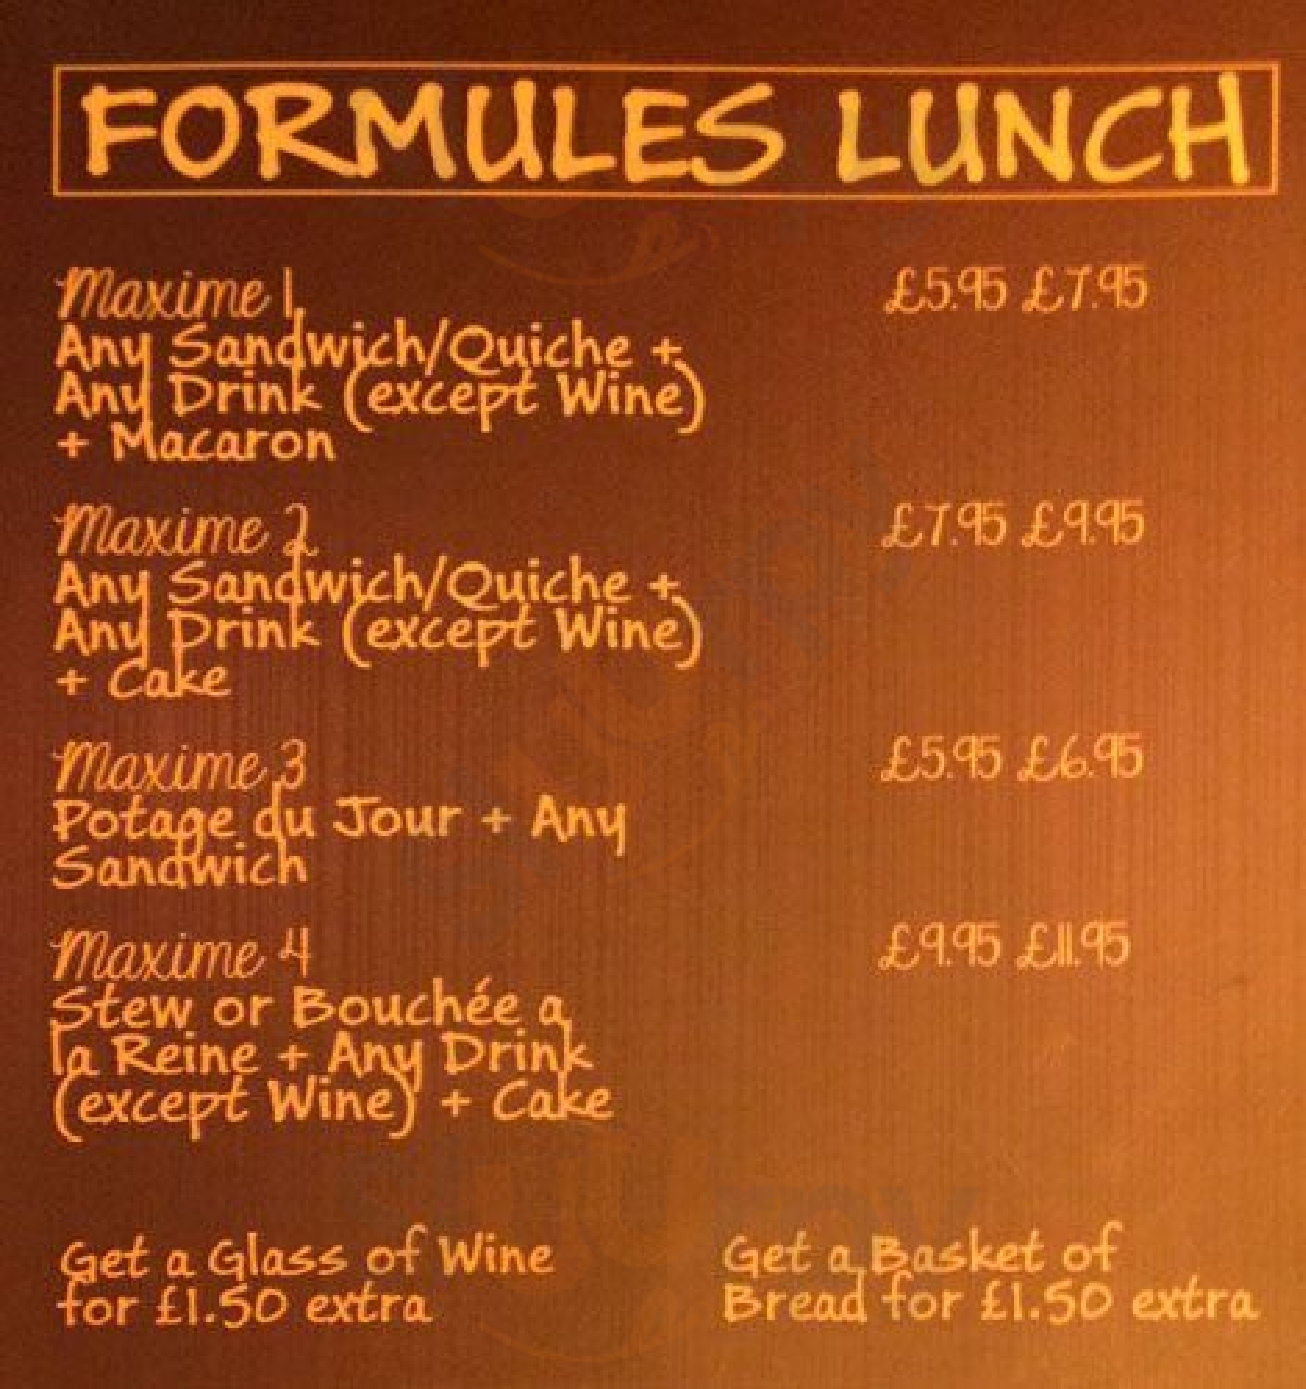 FORMULES LUNCH
Maxime 1 £5.95 £7.95
Any Sandwich/Quiche +
Any Drink (except Wine)
+ Macaron
Maxime 2 £7.95 £9.95
Any Sandwich/Quiche +
Any Drink (except Wine)
+ Cake
Maxime 3 £5.95 £6.95
Potage du Jour + Any
Sandwich
Maxime 4 £9.95 £11.95
Stew or Bouchée a
la Reine + Any Drink
(except Wine) + Cake
Get a Glass of Wine
for £1.50 extra
Get a Basket of
Bread for £1.50 extra